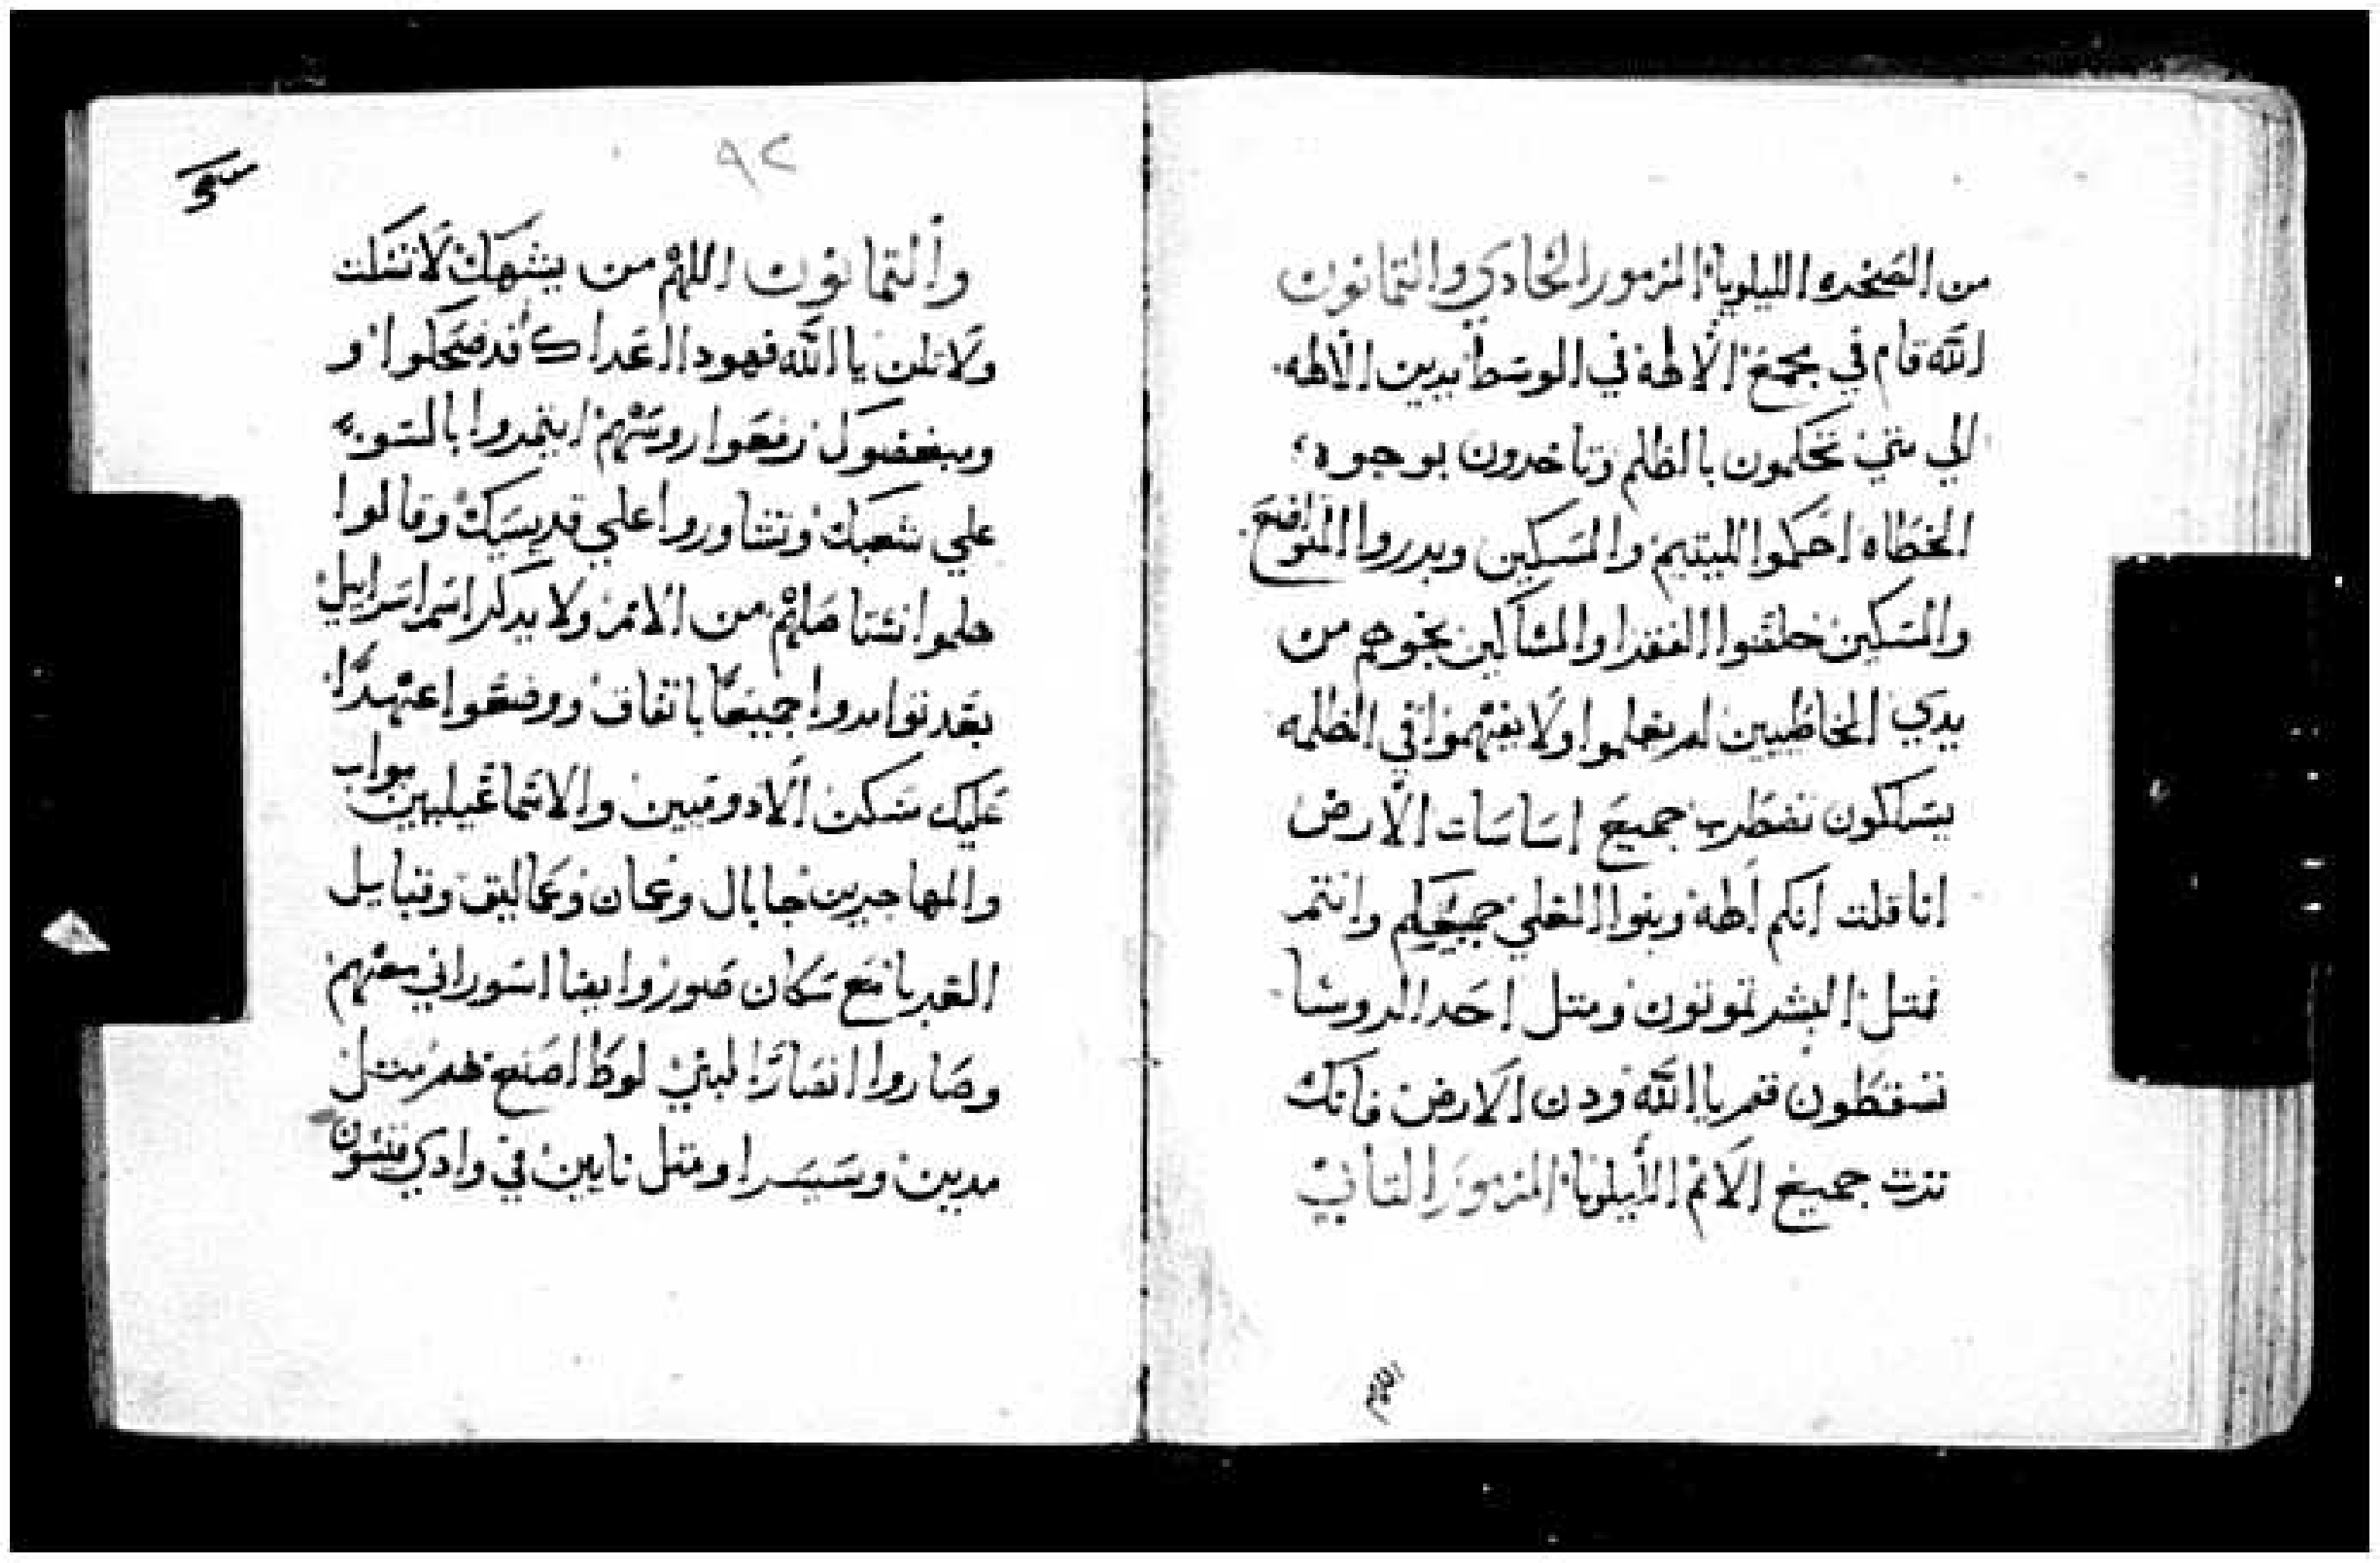 من الصخره الليلويا المزمور الحادي والتمانون
الله قام في مجمع الالهة في الوسط يدين الالهه
الي متي تحكمون بالظلم وتاخدون بوجوه
الخطاه احكموا لليتيم والمسكين وبرروا المتواضع
والمسكين خلصوا الفقرا والمساكين نجوهم من
يدي الخاطيين لم يعلموا ولا يفهموا في الظلمه
يسلكون تضطرب جميع اساسات الارض
انا قلت انكم الهة وبنوا العلي جميعكم وانتم
فمتل البشر تموتون ومتل احد الروسا
تسقطون قم يا الله ودن الارض فانك
ترت جميع الامم الليلويا المزمور التاني
٩٢
والتمانون اللهم من يشبهك لا تسكت
ولا تلن يا الله فهودا اعداك قد ضجلوا و
ومبغضوك رفعوا روسهم ايتمروا بالسو
علي شعبك وتشاوروا علي قديسيك وقالوا
هلموا نستاصلهم من الامم ولا يدكر اسم اسراييل
بعد توامروا جميعا باتفاق ووضعوا عهدا
عليك مسكن الادوميين والاسماعيليين مواب
والمهاجرين جابال وعمان وعماليق وقبايل
الغربا مع سكان صور وايضا اسور اتي معهم
وصاروا انصارا لبني لوط اصنع لهم متل
مدين وسيسرا ومتل نابين في وادي فيشون